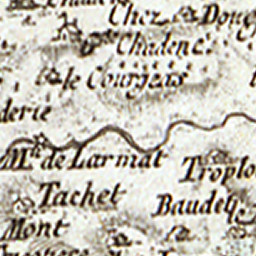 Chez Doug
Chadenc
le Courjzas
derie
Mn de Larmat
Troplo
Tachet
Baudel
Mont